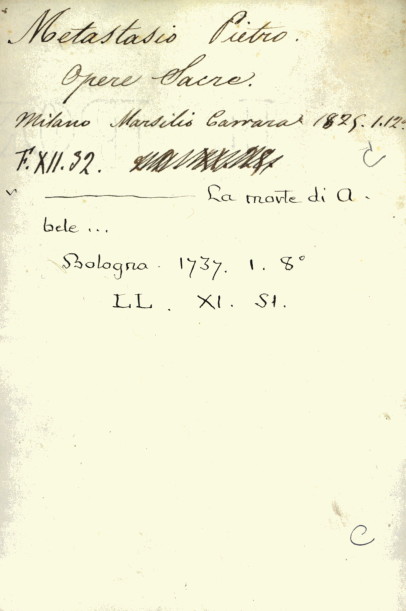 Metastasio Pietro.
Opere Sacre.
Milano Marsilio Carrara 1825. 1. 12°
F. XII. 32.
La morte di A-
bele...
Bologna. 1737. 1. 8°
LL. XI. 51.
C
C